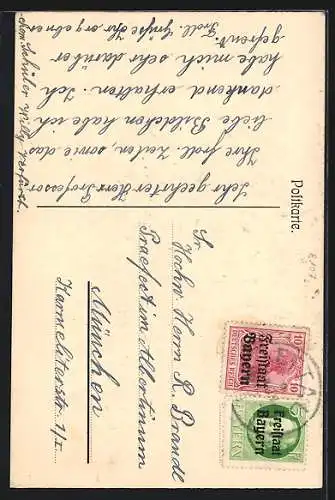 Postkarte.
Sehr geehrter Herr Professor
Ihre frdl. Zeilen, sowie das
liebe Bildchen habe ich
dankend erhalten. Ich
habe mich sehr darüber
gefreut.
Frdl. Grüße Ihr ergebener
Schüler Willy
Sr.
Hochw. Herrn R. Brandl
Praefect im Albertinum
München
Karmeliterstr. 1/I
10 10
DEUTSCHES REICH
Freistaat
Bayern
5
BAYERN
Freistaat
Bayern